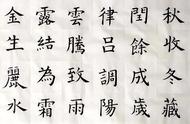 秋收冬藏
閏餘成歲
律呂調陽
雲騰致雨
露結為霜
金生麗水